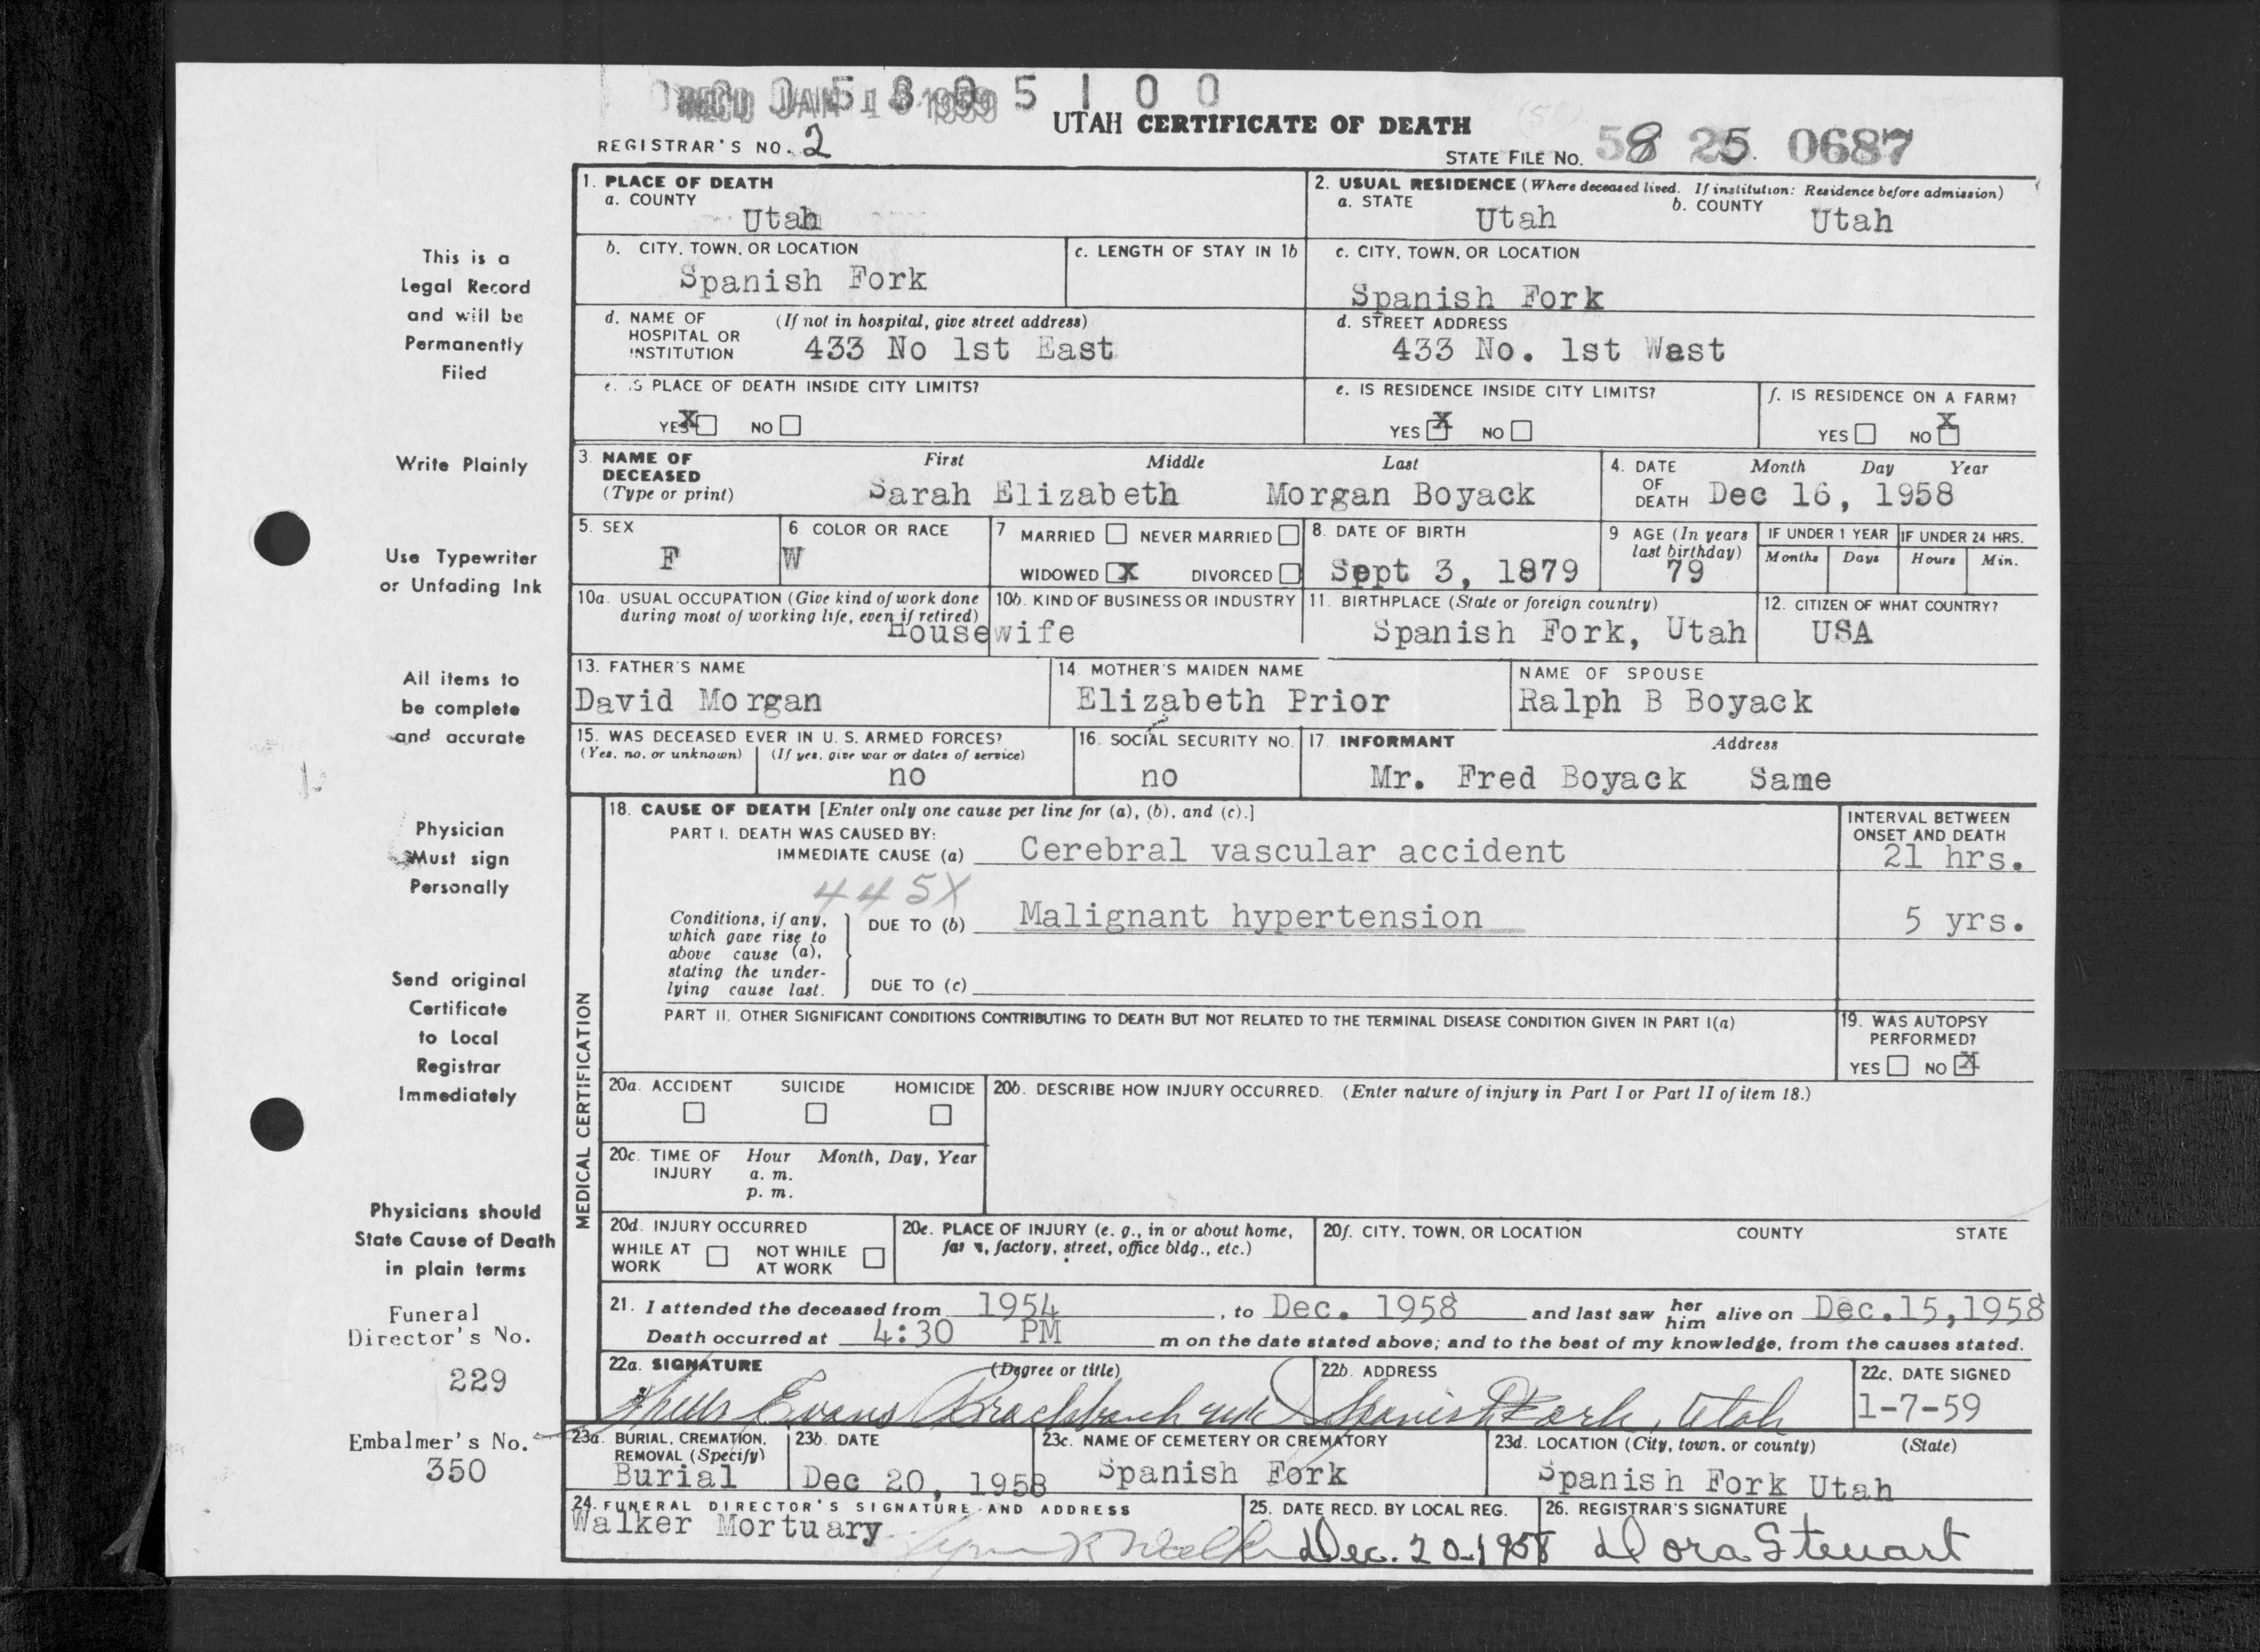 REC'D JAN 1 1959
0 5 8 0 5 1 0 0
UTAH CERTIFICATE OF DEATH
REGISTRAR'S NO. 2
STATE FILE NO. 58 25 0687
1. PLACE OF DEATH
a. COUNTY
Utah
2. USUAL RESIDENCE (Where deceased lived. If institution: Residence before admission)
a. STATE Utah b. COUNTY Utah
b. CITY, TOWN, OR LOCATION
Spanish Fork
c. LENGTH OF STAY IN 1b
c. CITY, TOWN, OR LOCATION
Spanish Fork
d. NAME OF HOSPITAL OR INSTITUTION (If not in hospital, give street address)
433 No 1st East
d. STREET ADDRESS
433 No. 1st West
e. IS PLACE OF DEATH INSIDE CITY LIMITS?
YES X NO
e. IS RESIDENCE INSIDE CITY LIMITS?
YES X NO
f. IS RESIDENCE ON A FARM?
YES NO X
3. NAME OF DECEASED (Type or print) First Middle Last
Sarah Elizabeth Morgan Boyack
4. DATE OF DEATH Month Day Year
Dec 16, 1958
5. SEX
F
6. COLOR OR RACE
W
7. MARRIED NEVER MARRIED
WIDOWED X DIVORCED
8. DATE OF BIRTH
Sept 3, 1879
9 AGE (In years last birthday)
79
IF UNDER 1 YEAR
Months Days
IF UNDER 24 HRS.
Hours Min.
10a. USUAL OCCUPATION (Give kind of work done during most of working life, even if retired)
Housewife
10b. KIND OF BUSINESS OR INDUSTRY
11. BIRTHPLACE (State or foreign country)
Spanish Fork, Utah
12. CITIZEN OF WHAT COUNTRY?
USA
13. FATHER'S NAME
David Morgan
14. MOTHER'S MAIDEN NAME
Elizabeth Prior
NAME OF SPOUSE
Ralph B Boyack
15. WAS DECEASED EVER IN U. S. ARMED FORCES?
(Yes, no, or unknown) (If yes, give war or dates of service)
no
16. SOCIAL SECURITY NO.
no
17. INFORMANT Address
Mr. Fred Boyack Same
MEDICAL CERTIFICATION
18. CAUSE OF DEATH [Enter only one cause per line for (a), (b), and (c).]
PART I. DEATH WAS CAUSED BY:
IMMEDIATE CAUSE (a) Cerebral vascular accident
INTERVAL BETWEEN ONSET AND DEATH
21 hrs.
445X
Conditions, if any, which gave rise to above cause (a), stating the underlying cause last.
DUE TO (b) Malignant hypertension 5 yrs.
DUE TO (c)
PART II. OTHER SIGNIFICANT CONDITIONS CONTRIBUTING TO DEATH BUT NOT RELATED TO THE TERMINAL DISEASE CONDITION GIVEN IN PART I(a)
19. WAS AUTOPSY PERFORMED?
YES NO X
20a. ACCIDENT SUICIDE HOMICIDE
20b. DESCRIBE HOW INJURY OCCURRED. (Enter nature of injury in Part I or Part II of item 18.)
20c. TIME OF INJURY Hour Month, Day, Year
a. m.
p. m.
20d. INJURY OCCURRED
WHILE AT WORK NOT WHILE AT WORK
20e. PLACE OF INJURY (e. g., in or about home, farm, factory, street, office bldg., etc.)
20f. CITY, TOWN, OR LOCATION COUNTY STATE
21. I attended the deceased from 1954, to Dec. 1958 and last saw her him alive on Dec.15,1958
Death occurred at 4:30 PM m on the date stated above; and to the best of my knowledge, from the causes stated.
22a. SIGNATURE (Degree or title)
Evans
22b. ADDRESS
Spanish Fork, Utah
22c. DATE SIGNED
1-7-59
23a. BURIAL, CREMATION, REMOVAL (Specify)
Burial
23b. DATE
Dec 20, 1958
23c. NAME OF CEMETERY OR CREMATORY
Spanish Fork
23d. LOCATION (City, town, or county) (State)
Spanish Fork Utah
24. FUNERAL DIRECTOR'S SIGNATURE AND ADDRESS
Walker Mortuary
25. DATE RECD. BY LOCAL REG.
Dec. 20-1958
26. REGISTRAR'S SIGNATURE
Dora Stewart
This is a
Legal Record
and will be
Permanently
Filed
Write Plainly
Use Typewriter
or Unfading Ink
All items to
be complete
and accurate
Physician
Must sign
Personally
Send original
Certificate
to Local
Registrar
Immediately
Physicians should
State Cause of Death
in plain terms
Funeral
Director's No.
229
Embalmer's No.
350